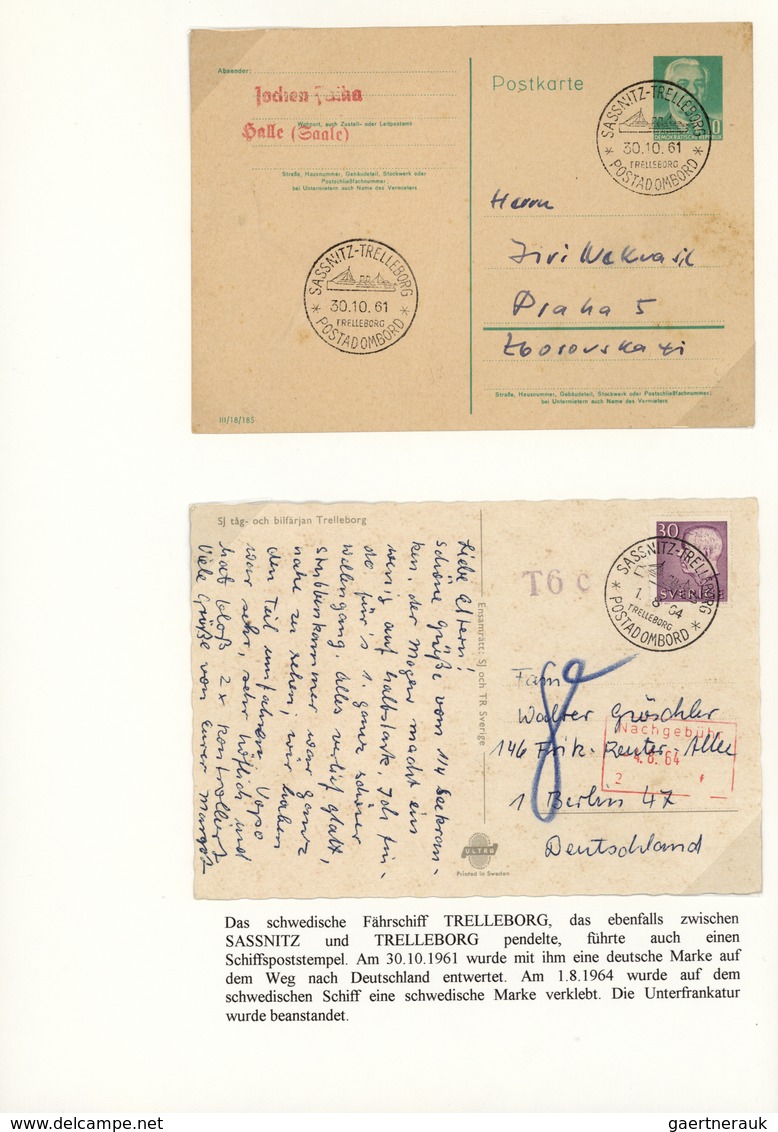 Absender:
Jochen
Wohnort, auch Zustell- oder Leitpostamt
Halle (Saale)
Straße, Hausnummer, Gebäudeteil, Stockwerk oder
Postschließfachnummer;
bei Untermietern auch Name des Vermieters
Postkarte
DEMOKRATISCHE REPUBLIK
SASSNITZ-TRELLEBORG
30.10.61
TRELLEBORG
* POSTADOMBORD *
Herrn
Jiri Nekvasil
Praha 5
Zborovská
Straße, Hausnummer, Gebäudeteil, Stockwerk oder Postschließfachnummer;
bei Untermietern auch Name des Vermieters
SASSNITZ-TRELLEBORG
30.10.61
TRELLEBORG
* POSTADOMBORD *
III/18/185
SJ tåg- och bilfärjan Trelleborg
Liebe Eltern!
Schöne Grüße vom
ken. der Magen macht ein
wenig auf halbstark. Ich fin-
do für's 1. ganz schöner
Wellengang. Alles verlief glatt,
Stubbenkammer war ganz
nahe zu sehen, wir haben
den Teil umfahren. Vopo
war sehr, sehr höflich und
hat bloß 2x kontrolliert
Viele Grüße von eurer Margot
Ensamrätt: SJ och TR Sverige
T6 c
30
SVERIGE
SASSNITZ-TRELLEBORG
1. 8 64
TRELLEBORG
* POSTADOMBORD *
Fam
Walter Gröschler
146 Fritz-Reuter-Allee
1 Berlin 47
Deutschland
Nachgebühr
4.8.64
2
ULTRA
Printed in Sweden
Das schwedische Fährschiff TRELLEBORG, das ebenfalls zwischen
SASSNITZ und TRELLEBORG pendelte, führte auch einen
Schiffspoststempel. Am 30.10.1961 wurde mit ihm eine deutsche Marke auf
dem Weg nach Deutschland entwertet. Am 1.8.1964 wurde auf dem
schwedischen Schiff eine schwedische Marke verklebt. Die Unterfrankatur
wurde beanstandet.
gaertnerauk